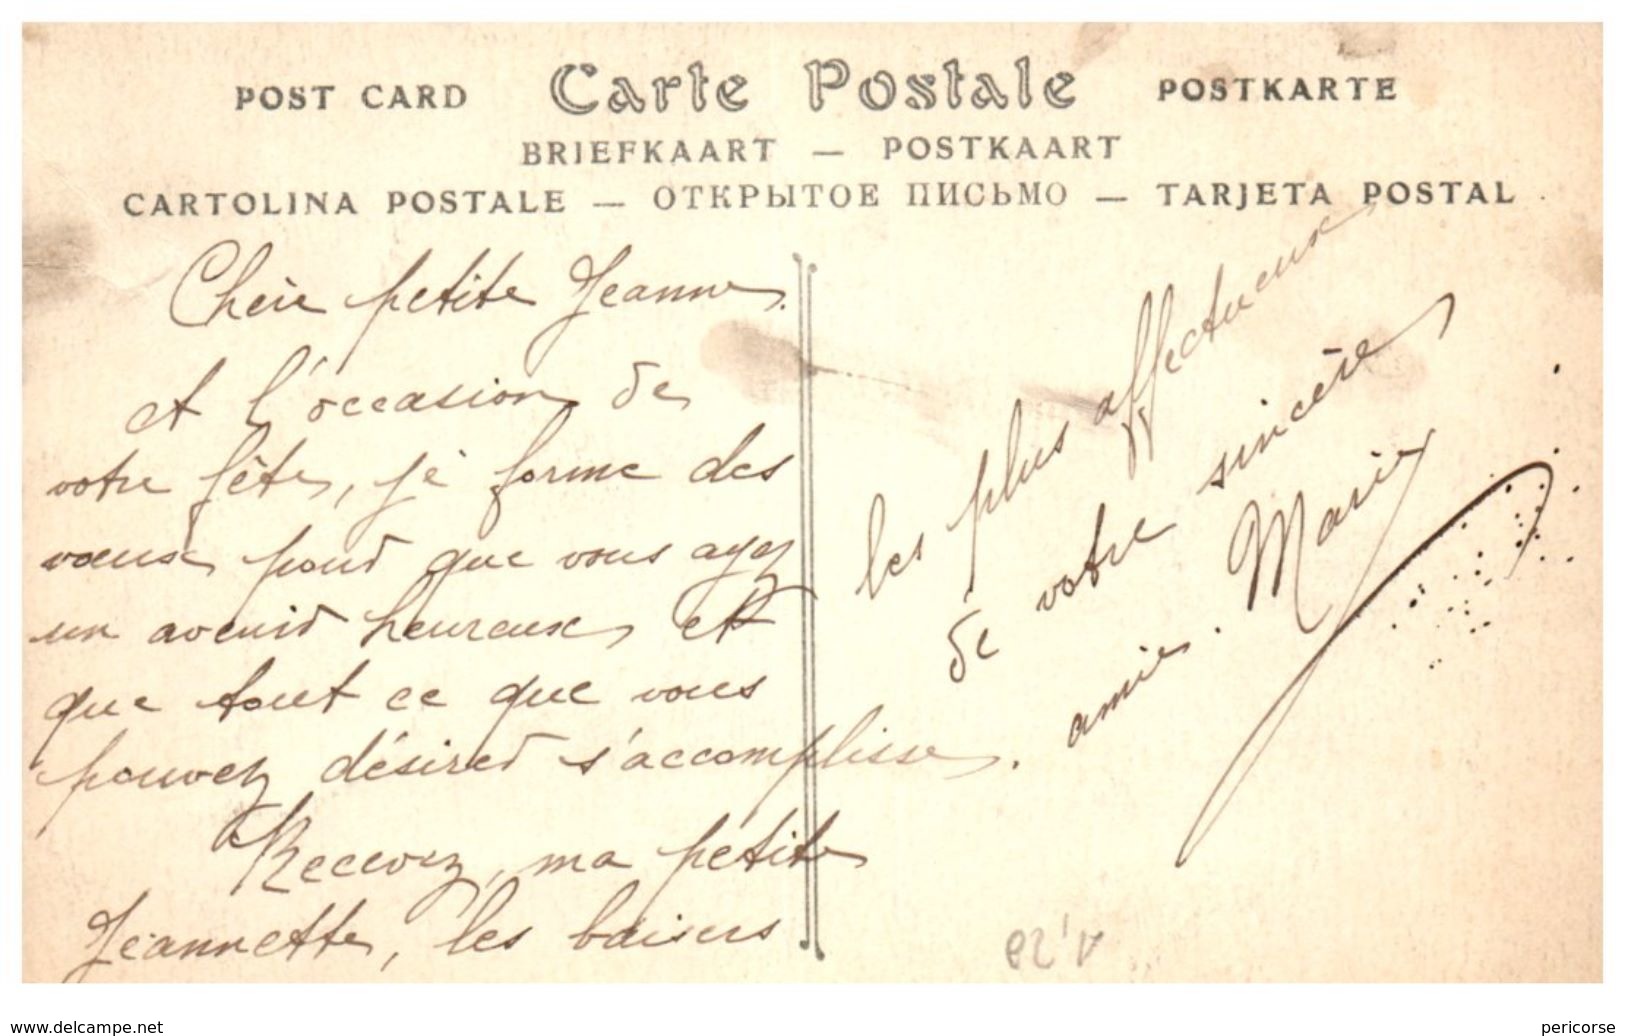 POST CARD Carte Postale POSTKARTE
BRIEFKAART — POSTKAART
CARTOLINA POSTALE — ОТКРЫТОЕ ПИСЬМО — TARJETA POSTAL
Chère petite Jeanne.
A l'occasion de
votre fête, je forme des
vœux pour que vous ayez
un avenir heureux et
que tout ce que vous
pouvez désirer s'accomplisse.
Recevez, ma petite
Jeannette, les baisers
les plus affectueux
de votre sincère
amie. Marie
www.delcampe.net
pericorse